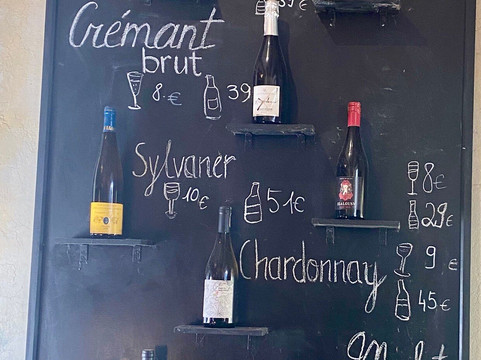 39€
Crémant
brut
8.€
39
Sylvaner
10€
51€
8€
29€
Chardonnay
9 €
45€